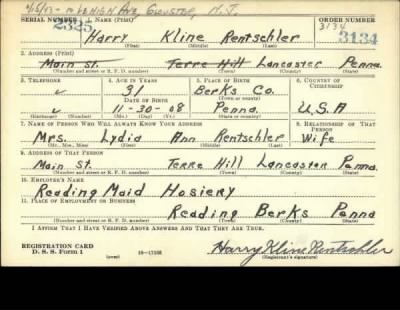 SERIAL NUMBER 1. NAME (Print) ORDER NUMBER
2325 Harry Kline Rentschler 3134
3134
(First) (Middle) (Last)
2. ADDRESS (Print)
Main St. Terre Hill Lancaster Penna.
(Number and street or R. F. D. number) (Town) (County) (State)
3. TELEPHONE 4. AGE IN YEARS 5. PLACE OF BIRTH 6. COUNTRY OF CITIZENSHIP
✓ 31 Berks Co.
DATE OF BIRTH (Town or county)
✓ 11-30-08 Penna. U.S.A
(Exchange) (Number) (Mo.) (Day) (Yr.) (State or country)
7. NAME OF PERSON WHO WILL ALWAYS KNOW YOUR ADDRESS 8. RELATIONSHIP OF THAT PERSON
Mrs. Lydia Ann Rentschler Wife
(Mr., Mrs., Miss) (First) (Middle) (Last)
9. ADDRESS OF THAT PERSON
Main St. Terre Hill Lancaster Penna.
(Number and street or R. F. D. number) (Town) (County) (State)
10. EMPLOYER'S NAME
Reading Maid Hosiery
11. PLACE OF EMPLOYMENT OR BUSINESS
Reading Berks Penna
(Number and street or R. F. D. number) (Town) (County) (State)
I AFFIRM THAT I HAVE VERIFIED ABOVE ANSWERS AND THAT THEY ARE TRUE.
REGISTRATION CARD
D. S. S. Form 1 (over) Harry Kline Rentschler
(Registrant's signature)